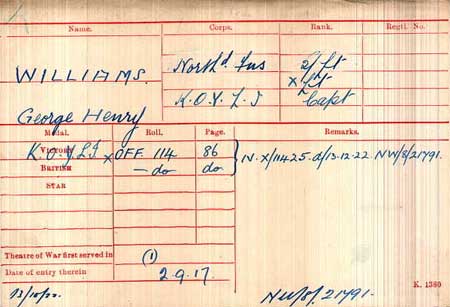 Name. Corps. Rank. Regtl. No.
WILLIAMS. North'd Fus 2/Lt
x Lt
George Henry K.O.Y.L.I Capt
Medal. Roll. Page. Remarks.
VICTORY K.O.Y.L.I. x OFF 114 86 } IV. X/11425.d/13.12.22 NW/8/21791.
BRITISH — do do
STAR
Theatre of War first served in (1)
Date of entry therein 2.9.17.
K. 1380
13/10/22. NW/8/21791.